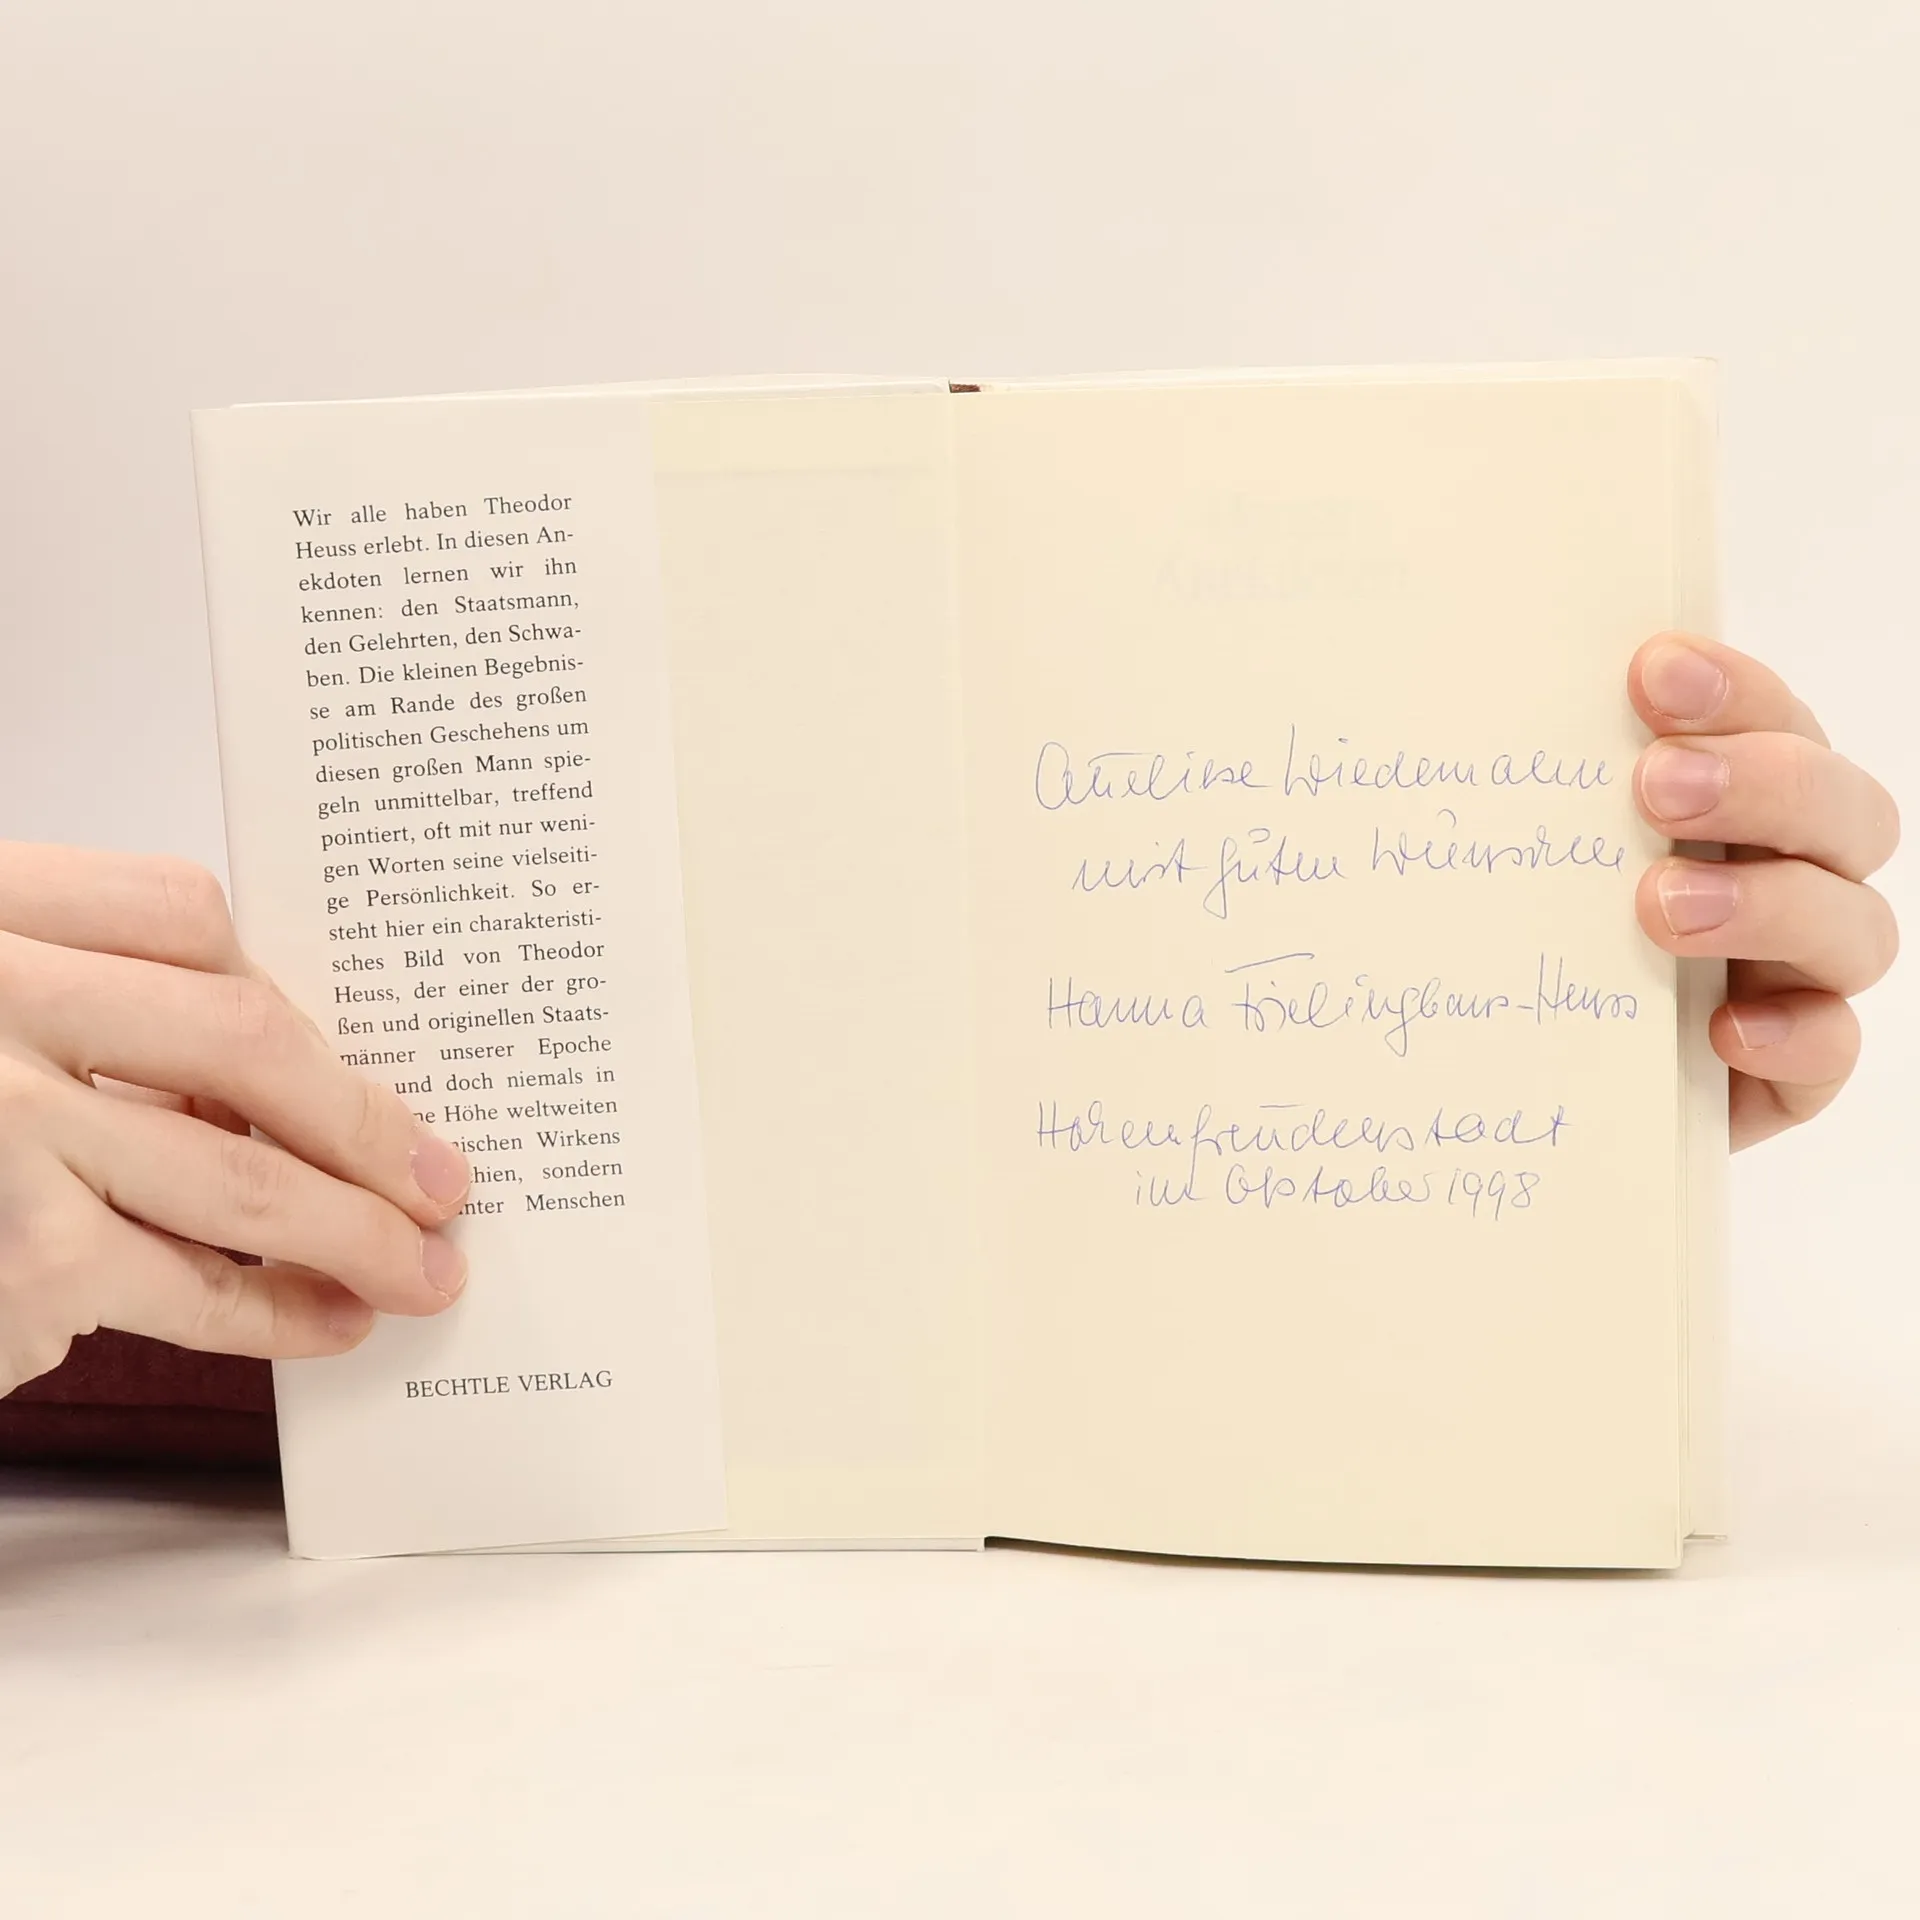 Wir alle haben Theodor
Heuss erlebt. In diesen An-
ekdoten lernen wir ihn
kennen: den Staatsmann,
den Gelehrten, den Schwa-
ben. Die kleinen Begebnis-
se am Rande des großen
politischen Geschehens um
diesen großen Mann spie-
geln unmittelbar, treffend
pointiert, oft mit nur weni-
gen Worten seine vielseiti-
ge Persönlichkeit. So er-
steht hier ein charakteristi-
sches Bild von Theodor
Heuss, der einer der gro-
ßen und originellen Staats-
männer unserer Epoche
und doch niemals in
Höhe weltweiten
Wirkens
sondern
Menschen
BECHTLE VERLAG
Anneliese Wiedemann
mit guten Wünschen
Hanna Frielinghaus-Heuss
Hohenfreudenstadt
im Oktober 1998